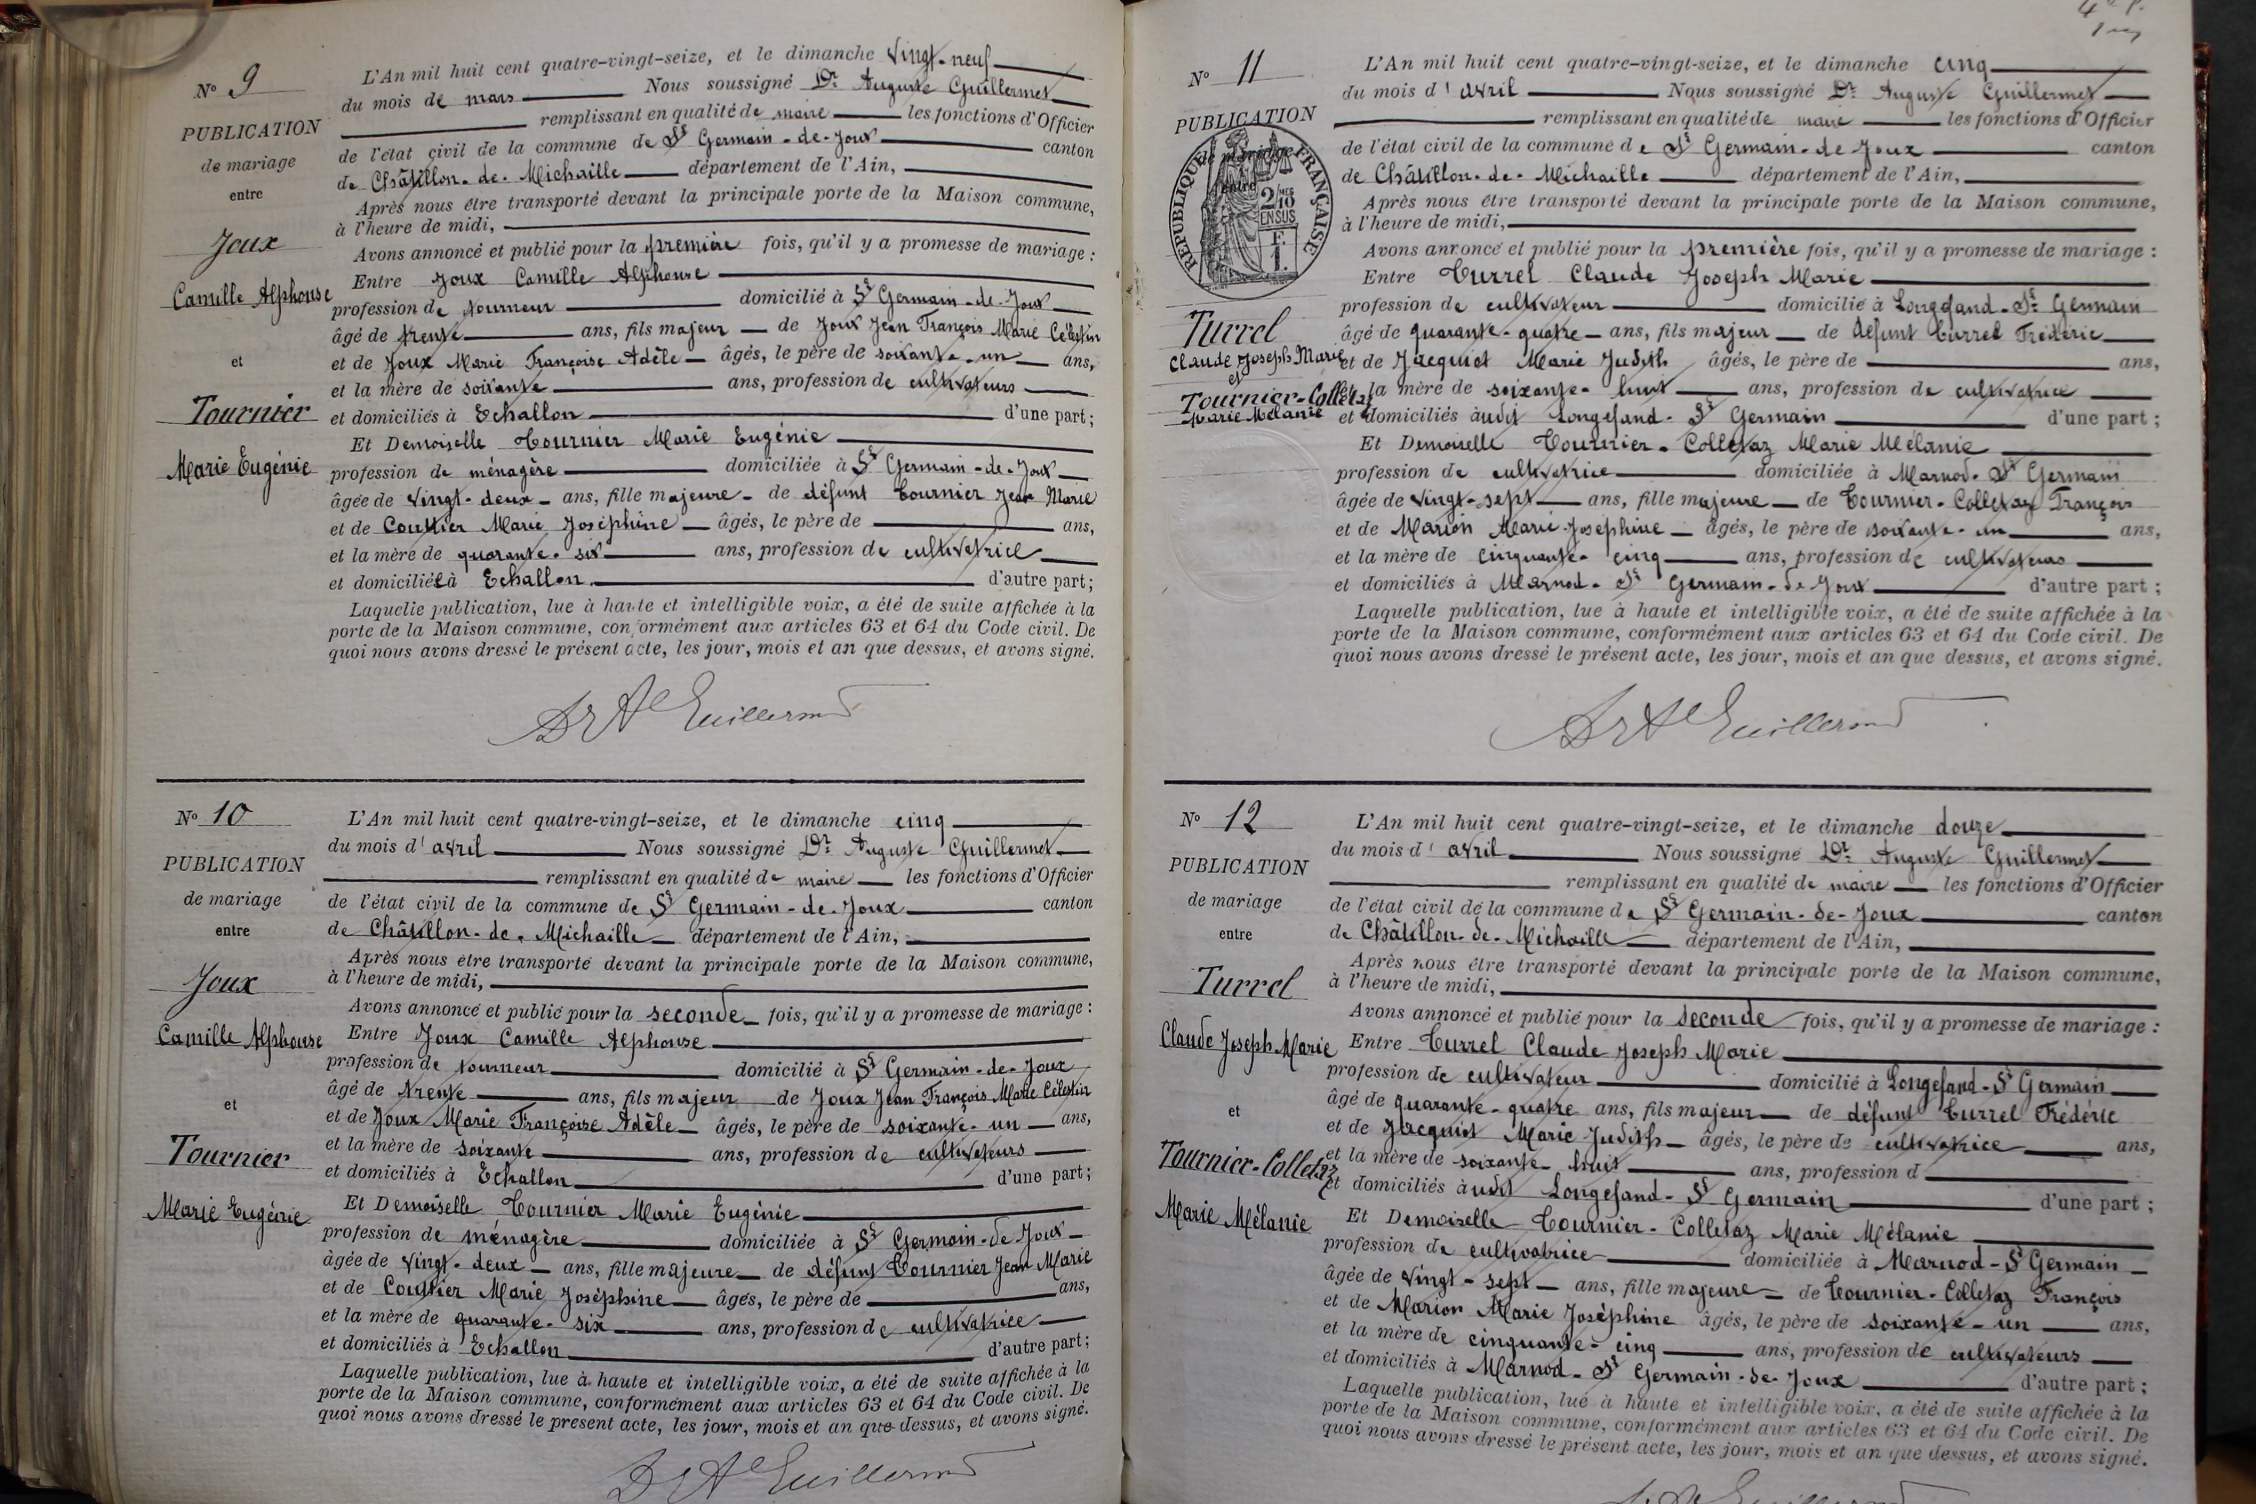 N° 9
PUBLICATION
de mariage
entre
Joux
Camille Alphonse
et
Tournier
Marie Eugénie
L'An mil huit cent quatre-vingt-seize, et le dimanche vingt-neuf
du mois de mars Nous soussigné Dr Auguste Guillermet
remplissant en qualité de maire les fonctions d'Officier
de l'état civil de la commune de St Germain-de-Joux canton
de Châtillon-de-Michaille département de l'Ain,
Après nous être transporté devant la principale porte de la Maison commune,
à l'heure de midi,
Avons annoncé et publié pour la première fois, qu'il y a promesse de mariage :
Entre Joux Camille Alphonse
profession de tourneur domicilié à St Germain-de-Joux
âgé de trente ans, fils majeur de Joux Jean François Marie Célestin
et de Joux Marie Françoise Adèle âgés, le père de soixante-un ans,
et la mère de soixante ans, profession de cultivateurs
et domiciliés à Echallon d'une part ;
Et Demoiselle Tournier Marie Eugénie
profession de ménagère domiciliée à St Germain-de-Joux
âgée de vingt-deux ans, fille majeure de défunt Tournier Jean Marie
et de Marie Joséphine âgés, le père de ans,
et la mère de quarante-six ans, profession de cultivatrice
et domiciliée à Echallon d'autre part ;
Laquelle publication, lue à haute et intelligible voix, a été de suite affichée à la
porte de la Maison commune, conformément aux articles 63 et 64 du Code civil. De
quoi nous avons dressé le présent acte, les jour, mois et an que dessus, et avons signé.
Dr Ate Guillermet
N° 10
PUBLICATION
de mariage
entre
Joux
Camille Alphonse
et
Tournier
Marie Eugénie
L'An mil huit cent quatre-vingt-seize, et le dimanche cinq
du mois d'avril Nous soussigné Dr Auguste Guillermet
remplissant en qualité de maire les fonctions d'Officier
de l'état civil de la commune de St Germain-de-Joux canton
de Châtillon-de-Michaille département de l'Ain,
Après nous être transporté devant la principale porte de la Maison commune,
à l'heure de midi,
Avons annoncé et publié pour la seconde fois, qu'il y a promesse de mariage :
Entre Joux Camille Alphonse
profession de tourneur domicilié à St Germain-de-Joux
âgé de trente ans, fils majeur de Joux Jean François Marie Célestin
et de Joux Marie Françoise Adèle âgés, le père de soixante-un ans,
et la mère de soixante ans, profession de cultivateurs
et domiciliés à Echallon d'une part ;
Et Demoiselle Tournier Marie Eugénie
profession de ménagère domiciliée à St Germain-de-Joux
âgée de vingt-deux ans, fille majeure de défunt Tournier Jean Marie
et de Marie Joséphine âgés, le père de ans,
et la mère de quarante-six ans, profession de cultivatrice
et domiciliés à Echallon d'autre part ;
Laquelle publication, lue à haute et intelligible voix, a été de suite affichée à la
porte de la Maison commune, conformément aux articles 63 et 64 du Code civil. De
quoi nous avons dressé le présent acte, les jour, mois et an que dessus, et avons signé.
Dr Ate Guillermet
N° 11
PUBLICATION
de mariage
entre
RÉPUBLIQUE FRANÇAISE
2/10
EN SUS
F.
1.
Turrel
Claude Joseph Marie
et
Tournier-Colletaz
Marie Mélanie
L'An mil huit cent quatre-vingt-seize, et le dimanche cinq
du mois d'avril Nous soussigné Dr Auguste Guillermet
remplissant en qualité de maire les fonctions d'Officier
de l'état civil de la commune de St Germain-de-Joux canton
de Châtillon-de-Michaille département de l'Ain,
Après nous être transporté devant la principale porte de la Maison commune,
à l'heure de midi,
Avons annoncé et publié pour la première fois, qu'il y a promesse de mariage :
Entre Turrel Claude Joseph Marie
profession de cultivateur domicilié à Longefand-St Germain
âgé de quarante-quatre ans, fils majeur de défunt Turrel Frédéric
et de Jacquiot Marie Judith âgés, le père de ans,
et la mère de soixante-huit ans, profession de cultivatrice
et domiciliés àudit Longefand-St Germain d'une part ;
Et Demoiselle Tournier-Colletaz Marie Mélanie
profession de cultivatrice domiciliée à Marnod-St Germain
âgée de vingt-sept ans, fille majeure de Tournier-Colletaz François
et de Marion Marie Josephine âgés, le père de soixante-un ans,
et la mère de cinquante-cinq ans, profession de cultivateurs
et domiciliés à Marnod-St Germain-de-Joux d'autre part ;
Laquelle publication, lue à haute et intelligible voix, a été de suite affichée à la
porte de la Maison commune, conformément aux articles 63 et 64 du Code civil. De
quoi nous avons dressé le présent acte, les jour, mois et an que dessus, et avons signé.
Dr Ate Guillermet
N° 12
PUBLICATION
de mariage
entre
Turrel
Claude Joseph Marie
et
Tournier-Colletaz
Marie Mélanie
L'An mil huit cent quatre-vingt-seize, et le dimanche douze
du mois d'avril Nous soussigné Dr Auguste Guillermet
remplissant en qualité de maire les fonctions d'Officier
de l'état civil de la commune de St Germain-de-Joux canton
de Châtillon-de-Michaille département de l'Ain,
Après nous être transporté devant la principale porte de la Maison commune,
à l'heure de midi,
Avons annoncé et publié pour la seconde fois, qu'il y a promesse de mariage :
Entre Turrel Claude Joseph Marie
profession de cultivateur domicilié à Longefand-St Germain
âgé de quarante-quatre ans, fils majeur de défunt Turrel Frédéric
et de Jacquiot Marie Judith âgés, le père de cultivatrice ans,
et la mère de soixante-huit ans, profession d
et domiciliés àudit Longefand-St Germain d'une part ;
Et Demoiselle Tournier-Colletaz Marie Mélanie
profession de cultivatrice domiciliée à Marnod-St Germain
âgée de vingt-sept ans, fille majeure de Tournier-Colletaz François
et de Marion Marie Joséphine âgés, le père de soixante-un ans,
et la mère de cinquante-cinq ans, profession de cultivateurs
et domiciliés à Marnod-St Germain-de-Joux d'autre part ;
Laquelle publication, lue à haute et intelligible voix, a été de suite affichée à la
porte de la Maison commune, conformément aux articles 63 et 64 du Code civil. De
quoi nous avons dressé le présent acte, les jour, mois et an que dessus, et avons signé.